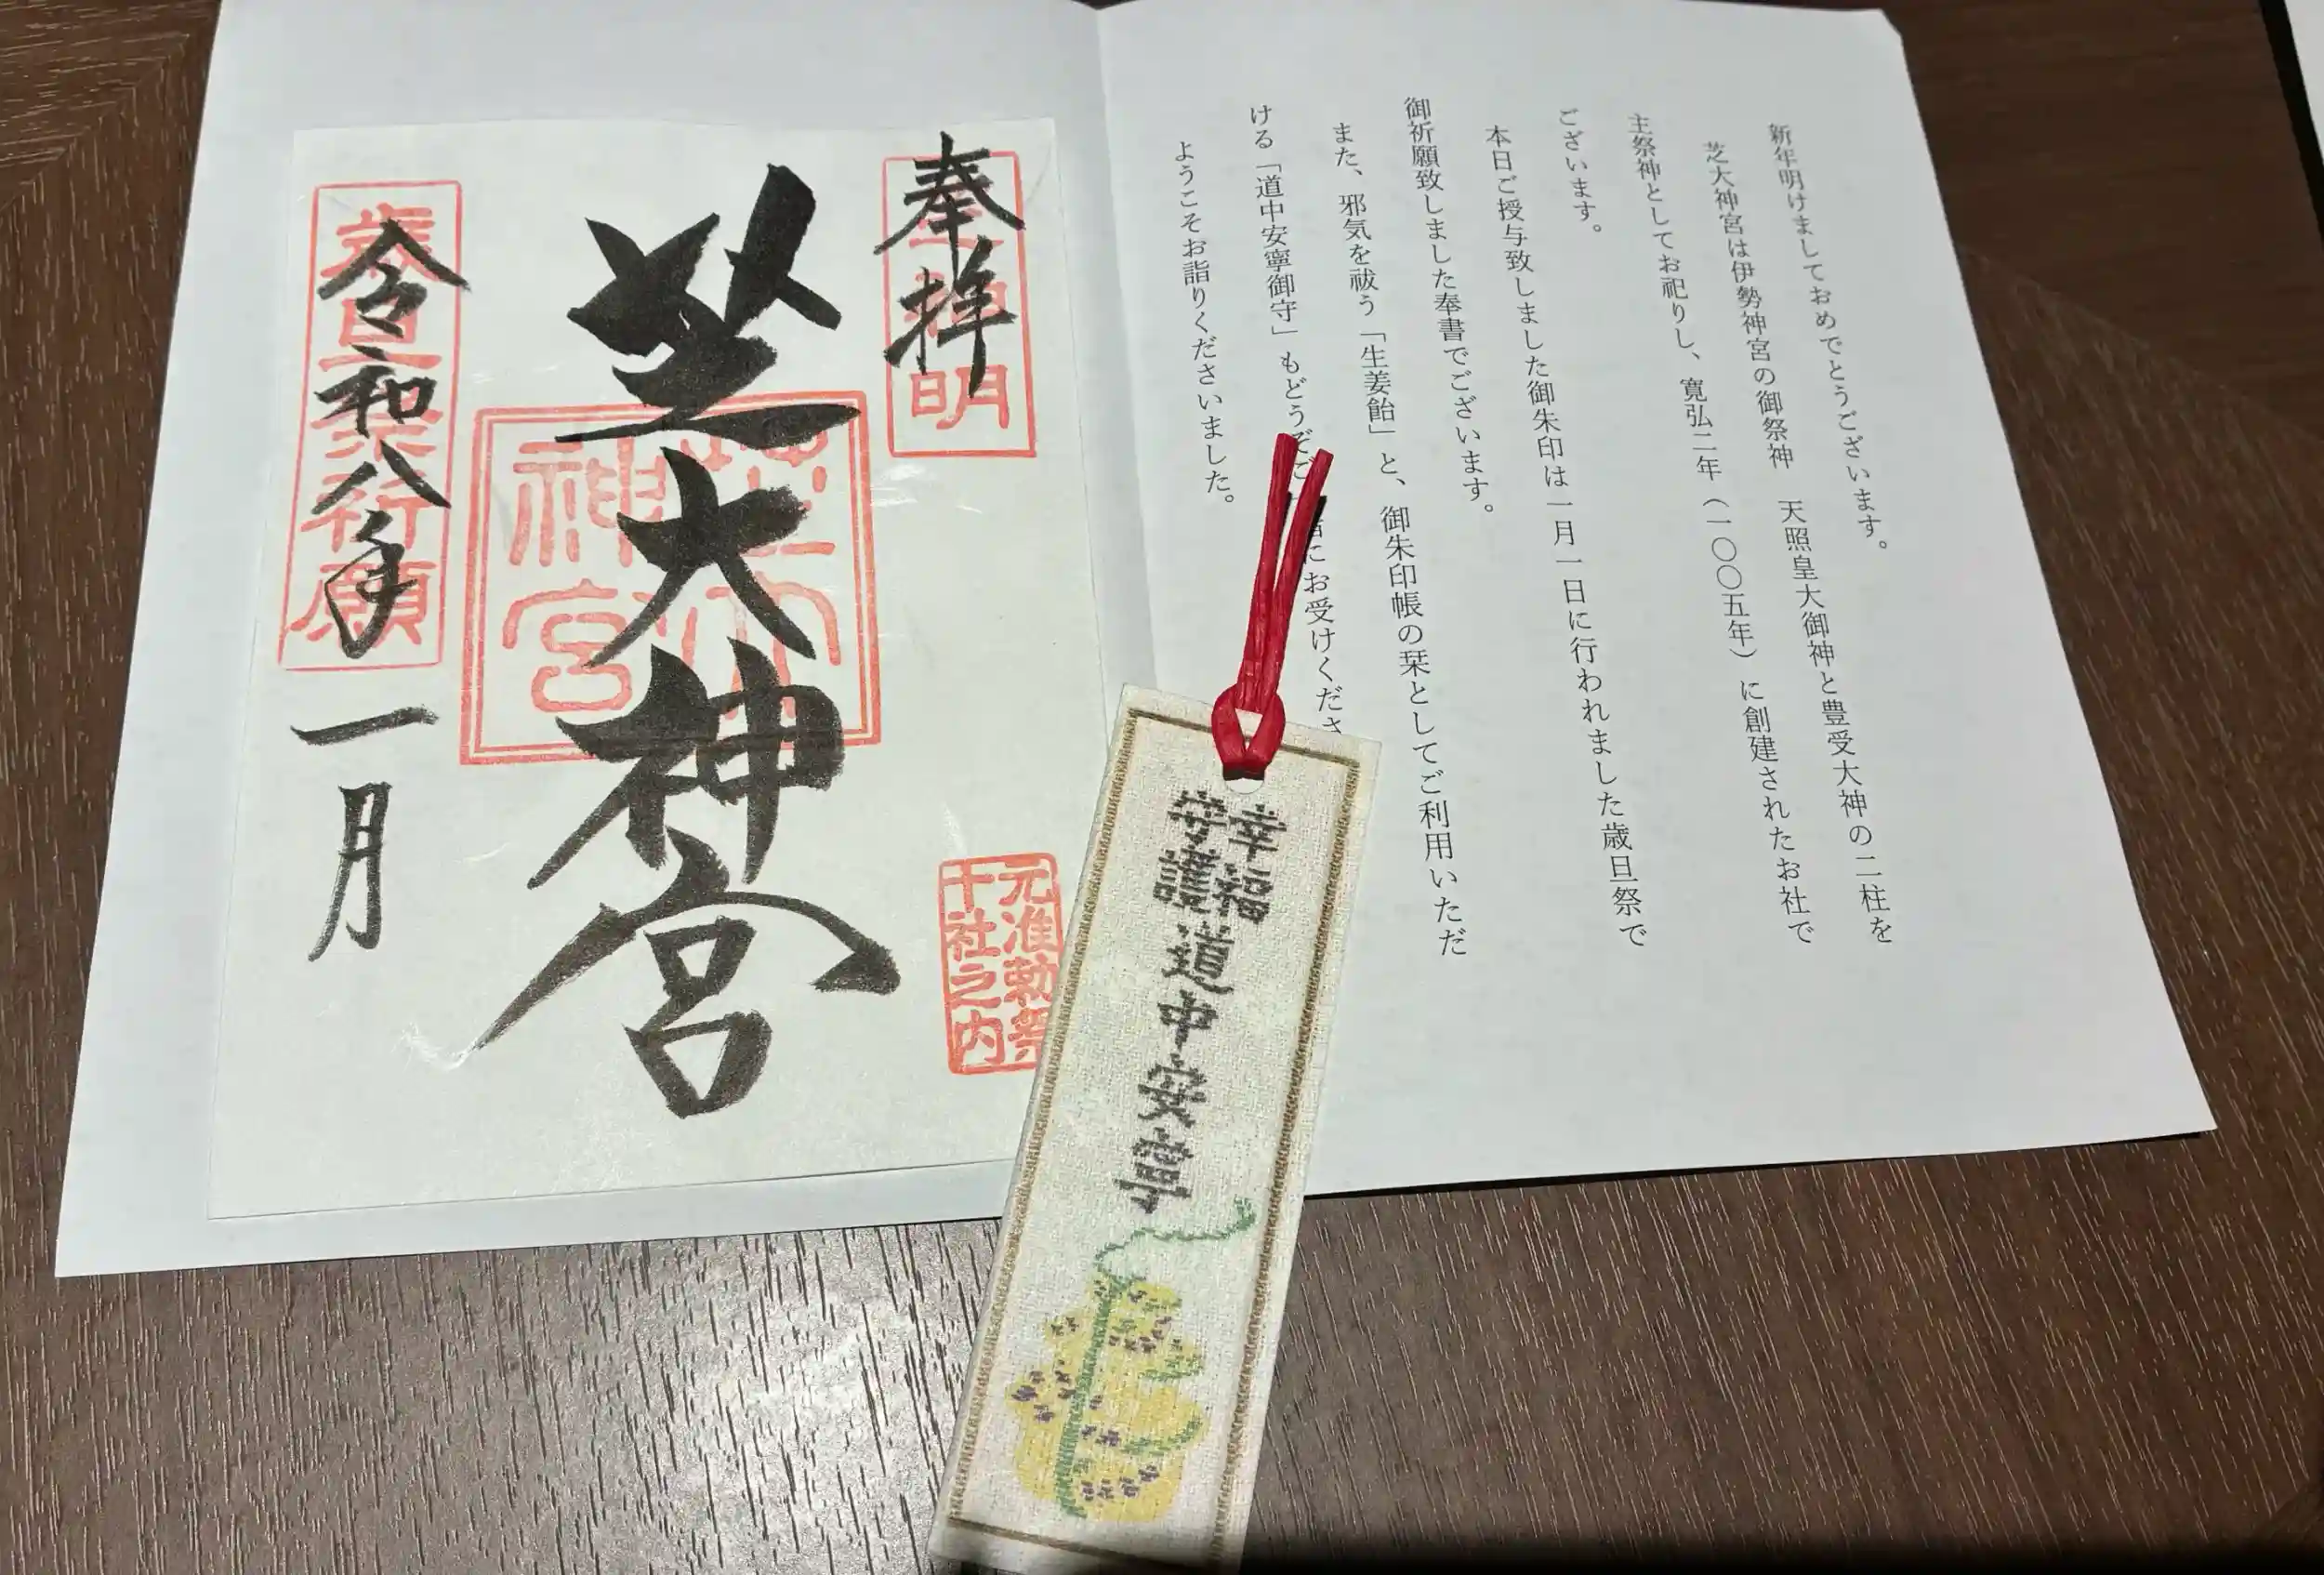 新年明けましておめでとうございます。
芝大神宮は伊勢神宮の御祭神 天照皇大御神と豊受大神の二柱を
主祭神としてお祀りし、寛弘二年(一〇〇五年)に創建されたお社で
ございます。
本日ご授与致しました御朱印は一月一日に行われました歳旦祭で
御祈願致しました奉書でございます。
また、邪気を祓う「生姜飴」と、御朱印帳の栞としてご利用いただ
ける「道中安寧御守」もどうぞご にお受けくださ
ようこそお詣りくださいました。
奉拝
明
芝大神宮
芝大
神宮
元准勅祭
十社之内
令和八年一月
歳旦祭祈願
幸福
守護
道中安寧